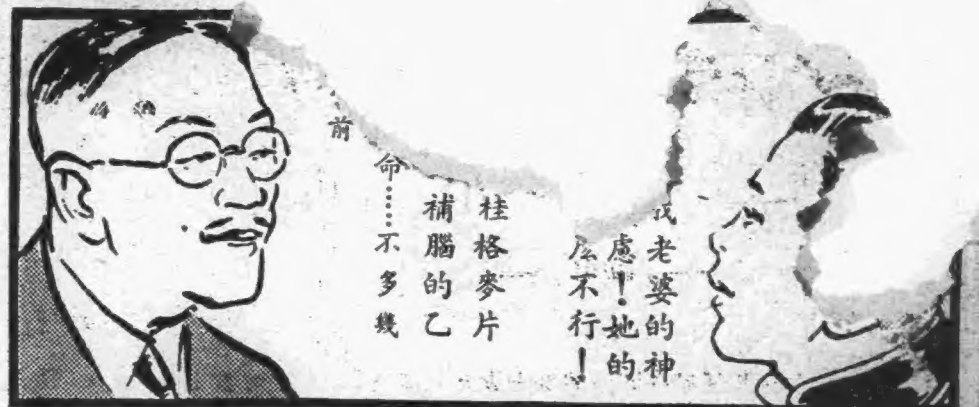 我老婆的神
慮！她的
不行！
桂格麥片
補腦的乙
命……不多幾
前